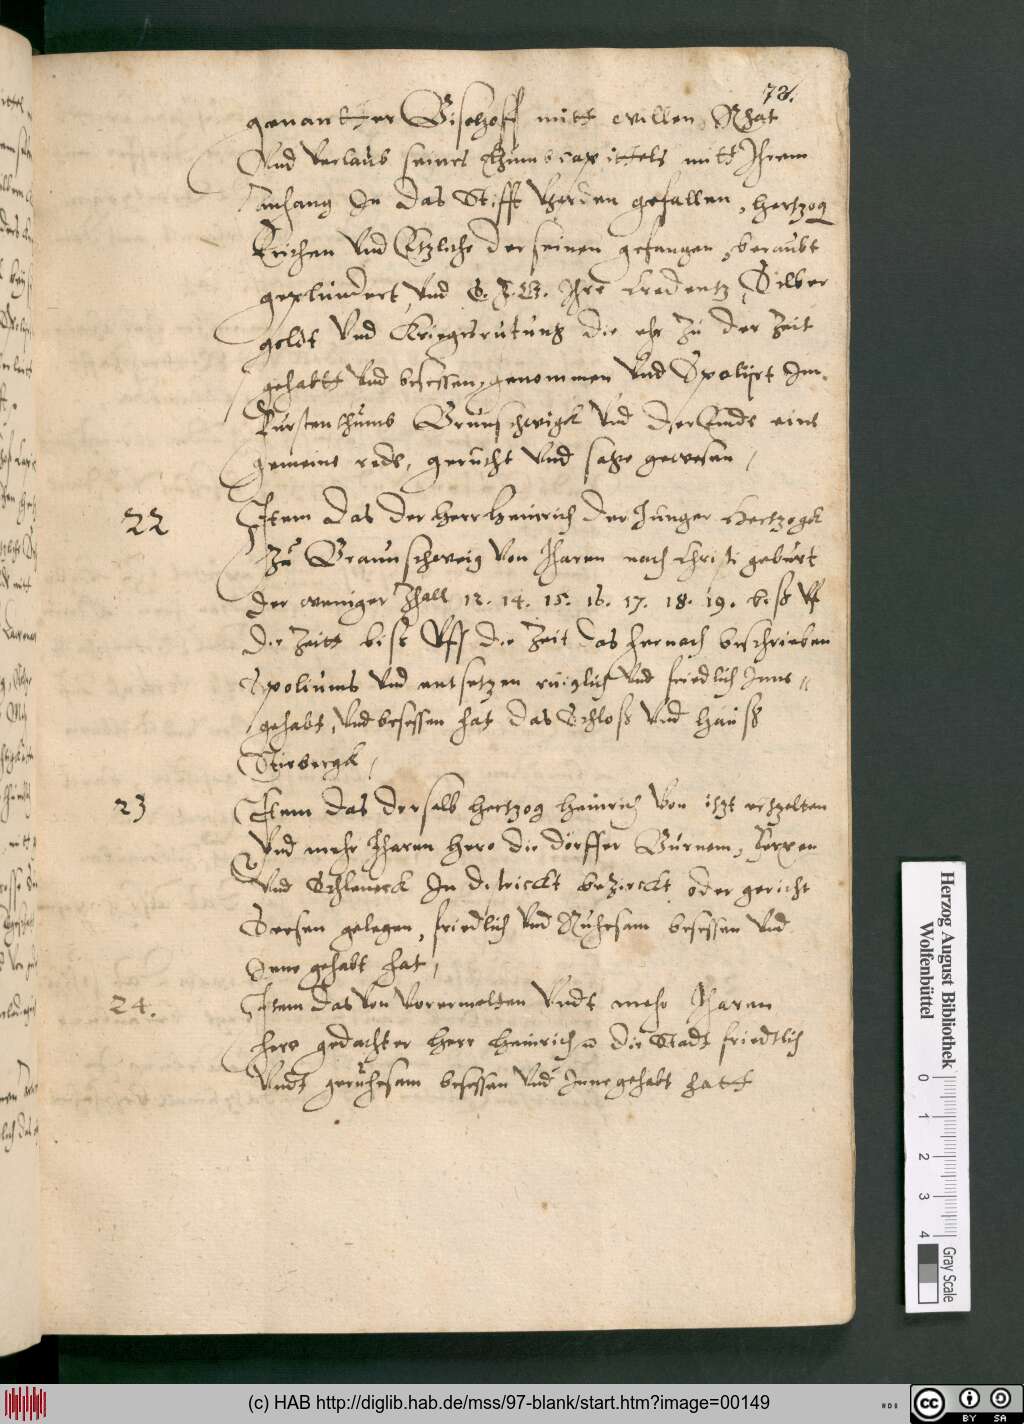 73.
genantter Bischoff mitt willen Rhat
Und verlaub seines Thumbcapittels mitt Ihrem
anhang In das Stifft Verden gefallen, hertzog
Erichen Und Etzliche der seinen gefangen, beraubt
geplundert, Und S. F. G. Ihre Credentz, Silber
goldt Und Kriegsrutung die ehr Zu der Zeit
gehabtt Und besessen, genommen Und Spolijrt Im
Furstenthumb Brunschwigk Und der Ends eine
gemeine rede, gerucht Und sage gewesen,
22 Item das der Herr Heinrich der Junger Hertzogk
Zu Braunschweig Von Iharen nach Christi geburt
der weniger Zhall 13. 14. 15. 16. 17. 18. 19. biß Uff
die Zeitt biß Uff die Zeit das hernach beschrieben
Spoliums Und entsetzen ruiglich Und friedlich Inne
gehabt, Und besessen hat das Schloß Und Hauß
Stirbergk,
23 Item das derselb Hertzog Heinrich Von itzt ertzelten
Und mehr Iharen hero die dorffer Burnem,
Und Schleweck In bezirckt oder gericht
Seesen gelegen, friedlich Und Ruhesam besessen Und
Inne gehabt hat,
24. Item das Von Vorermelten Undt mehr Iharen
hero gedachter Herr Heinrich die Stadt friedtlich
Undt geruhesam besessen Und Inne gehabt hatt
Herzog August Bibliothek
Wolfenbüttel
0 1 2 3 4
Gray Scale
(c) HAB http://diglib.hab.de/mss/97-blank/start.htm?image=00149
HAB
cc BY SA